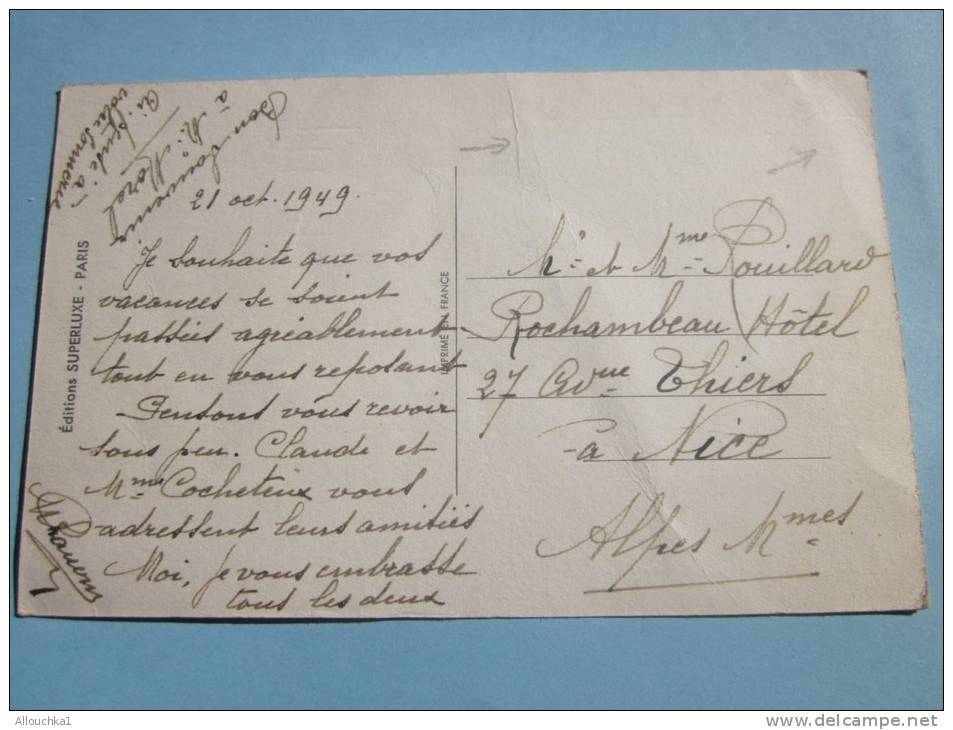 Bon Souvenir
à M. Morel
21 oct. 1949.
Je souhaite que vos
vacances se soient
passées agréablement
tout en vous reposant
Pensons vous revoir
sous peu. Claude et
Mme Cocheteux vous
adressent leurs amitiés
Moi, je vous embrasse
tous les deux
Éditions SUPERLUXE - PARIS
IMPRIMÉ EN FRANCE
Mr et Mme Pouillard
Rochambeau Hôtel
27 Avue Thiers
à Nice
Alpes Mmes
Allouchka1
www.delcampe.net